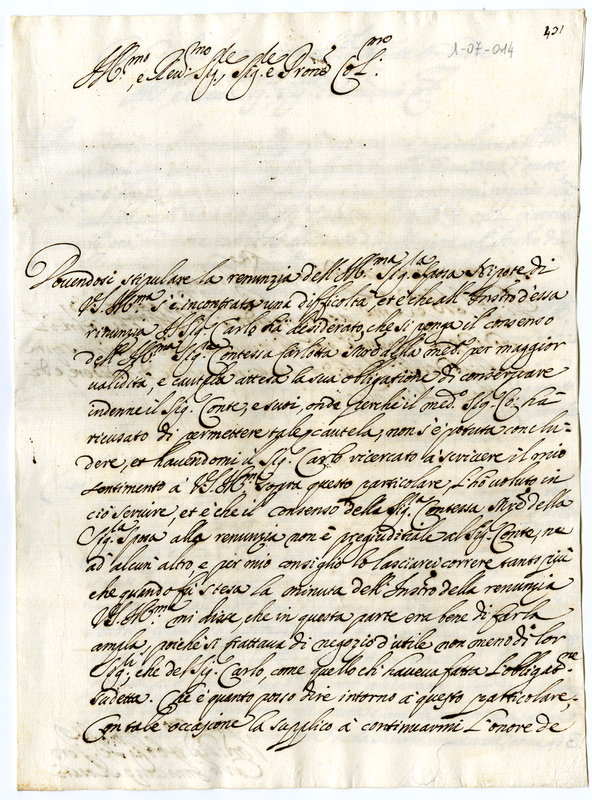 401
1-07-014
Ill.mo e Rev.mo Sig.re, Sig.re e Prone Col.mo
Dovendosi stipulare la renunzia dell'Ill.ma Sig.la Nipote di
V.S. Ill.ma s'è incontrata una difficoltà, et è che all'Instro d'essa
rinunzia il Sig. Carlo hà desiderato, che si ponga il consenso
dell'Ill.ma Sig.ra Contessa Carlotta Mrē della med.a per maggior
validità, e cautela attesa la sua obligatione di conservare
indenne il Sig. Conte, e suoi, onde perche il med.o Sig. Co. hà
ricusato di permettere tale cautela, non s'è potuta conclu-
dere, et havendomi il Sig. Carlo ricercato à scrivere il mio
sentimento à V.S. Ill.ma sopra questo particolare l'hò voluto in
ciò servire, et è che il consenso della Sig.ra Contessa Mrē della
Sig.la Sposa alla renunzia non è pregiuditiale al Sig. Conte, ne
ad alcun'altro, e per mio consiglio lo lasciarei correre tanto più
che quando fù stesa la minuta dell'Instro della renunzia
V.S. Ill.ma mi disse, che in questa parte era bene di farla
ampla, poiche si trattava di negozio d'utile non meno di lor
Sig.ri, che del Sig. Carlo, come quello ch'haveva fatta l'obligat.ne
sudetta. Che è quanto posso dire intorno à questo particolare,
Con tale occasione la supplico à continuarmi l'onore de